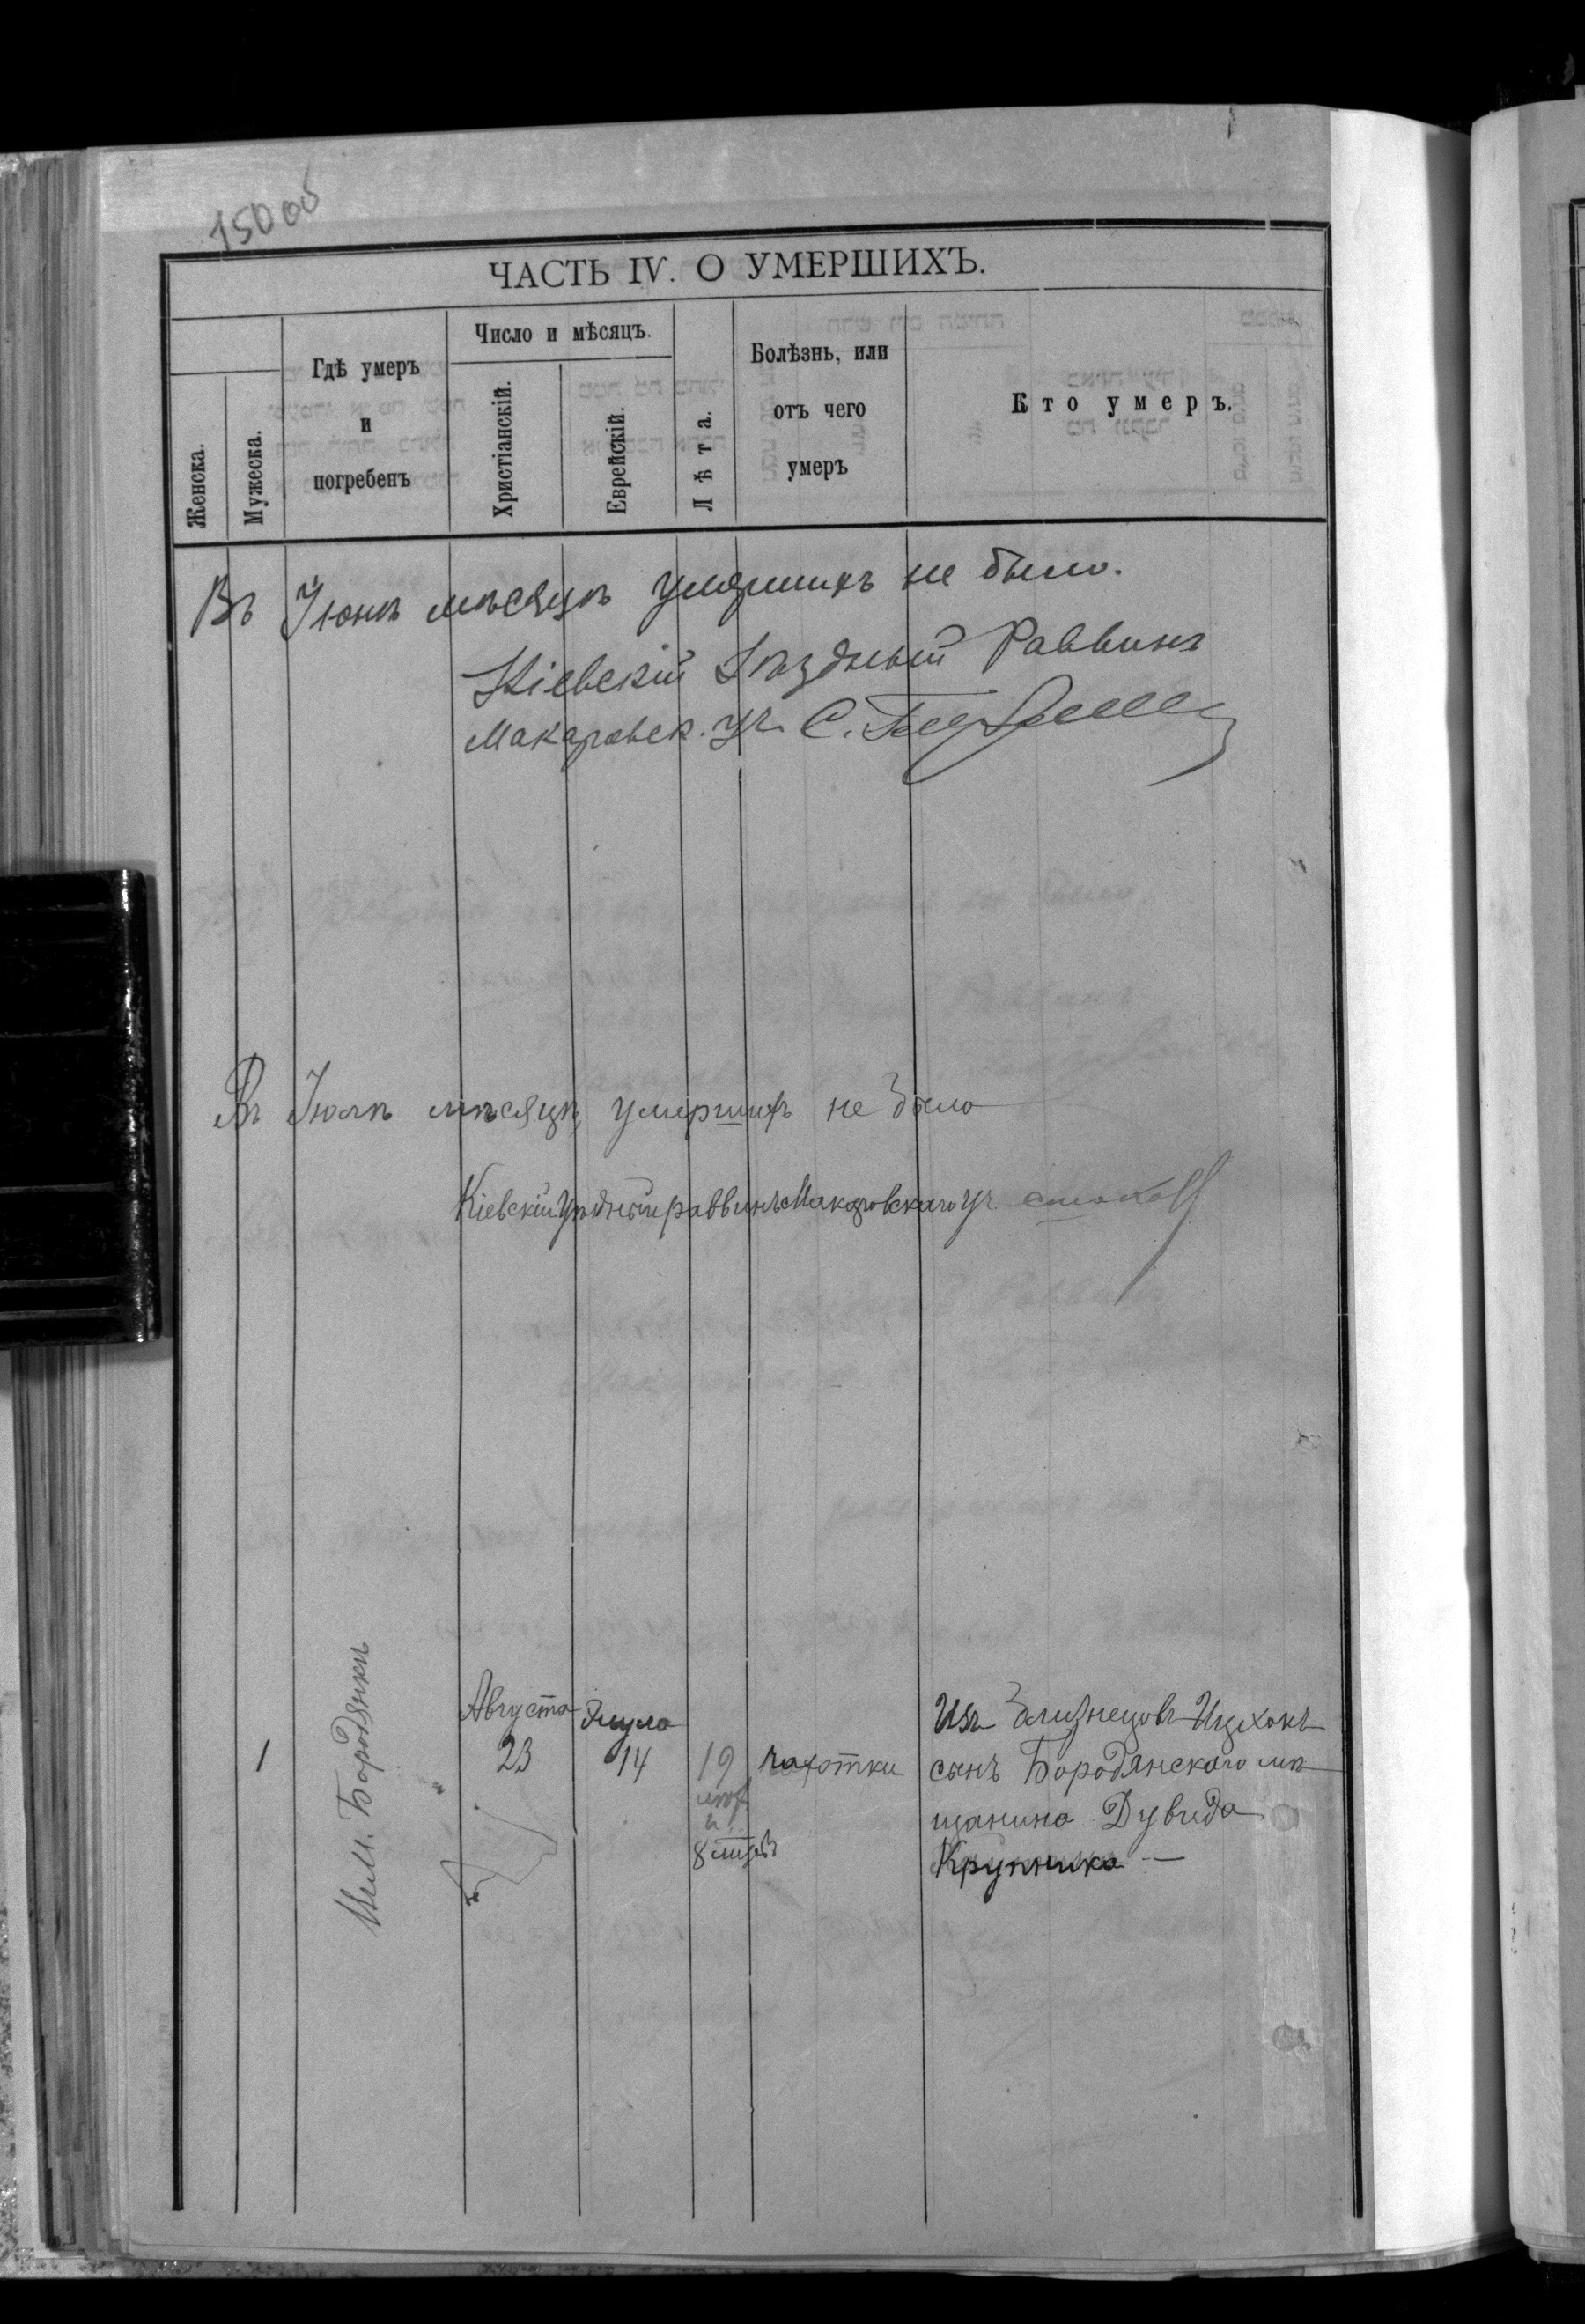 150 об
ЧАСТЬ IV. О УМЕРШИХЪ.
Женска.
Мужеска.
Гдѣ умеръ
и
погребенъ
Число и мѣсяцъ.
Христіанскій.
Еврейскій.
Лѣта.
Болѣзнь, или
отъ чего
умеръ
Кто умеръ.
Въ Іюнѣ мѣсяцѣ умершихъ не было.
Кіевскій Уѣздный Раввинъ
Макаровск. уч. С.
Въ Іюлѣ мѣсяцѣ умершихъ не было
Кіевскій Уѣздный раввинъ Макаровскаго уч.
1
Им. Бородянкѣ
Августа
23
Элула
14
19
лѣт
и
8 мцѣв
чахотки
Изъ близнецовъ Ицхокъ
сынъ Бородянскаго мѣ
щанина Дувида
Крупника —